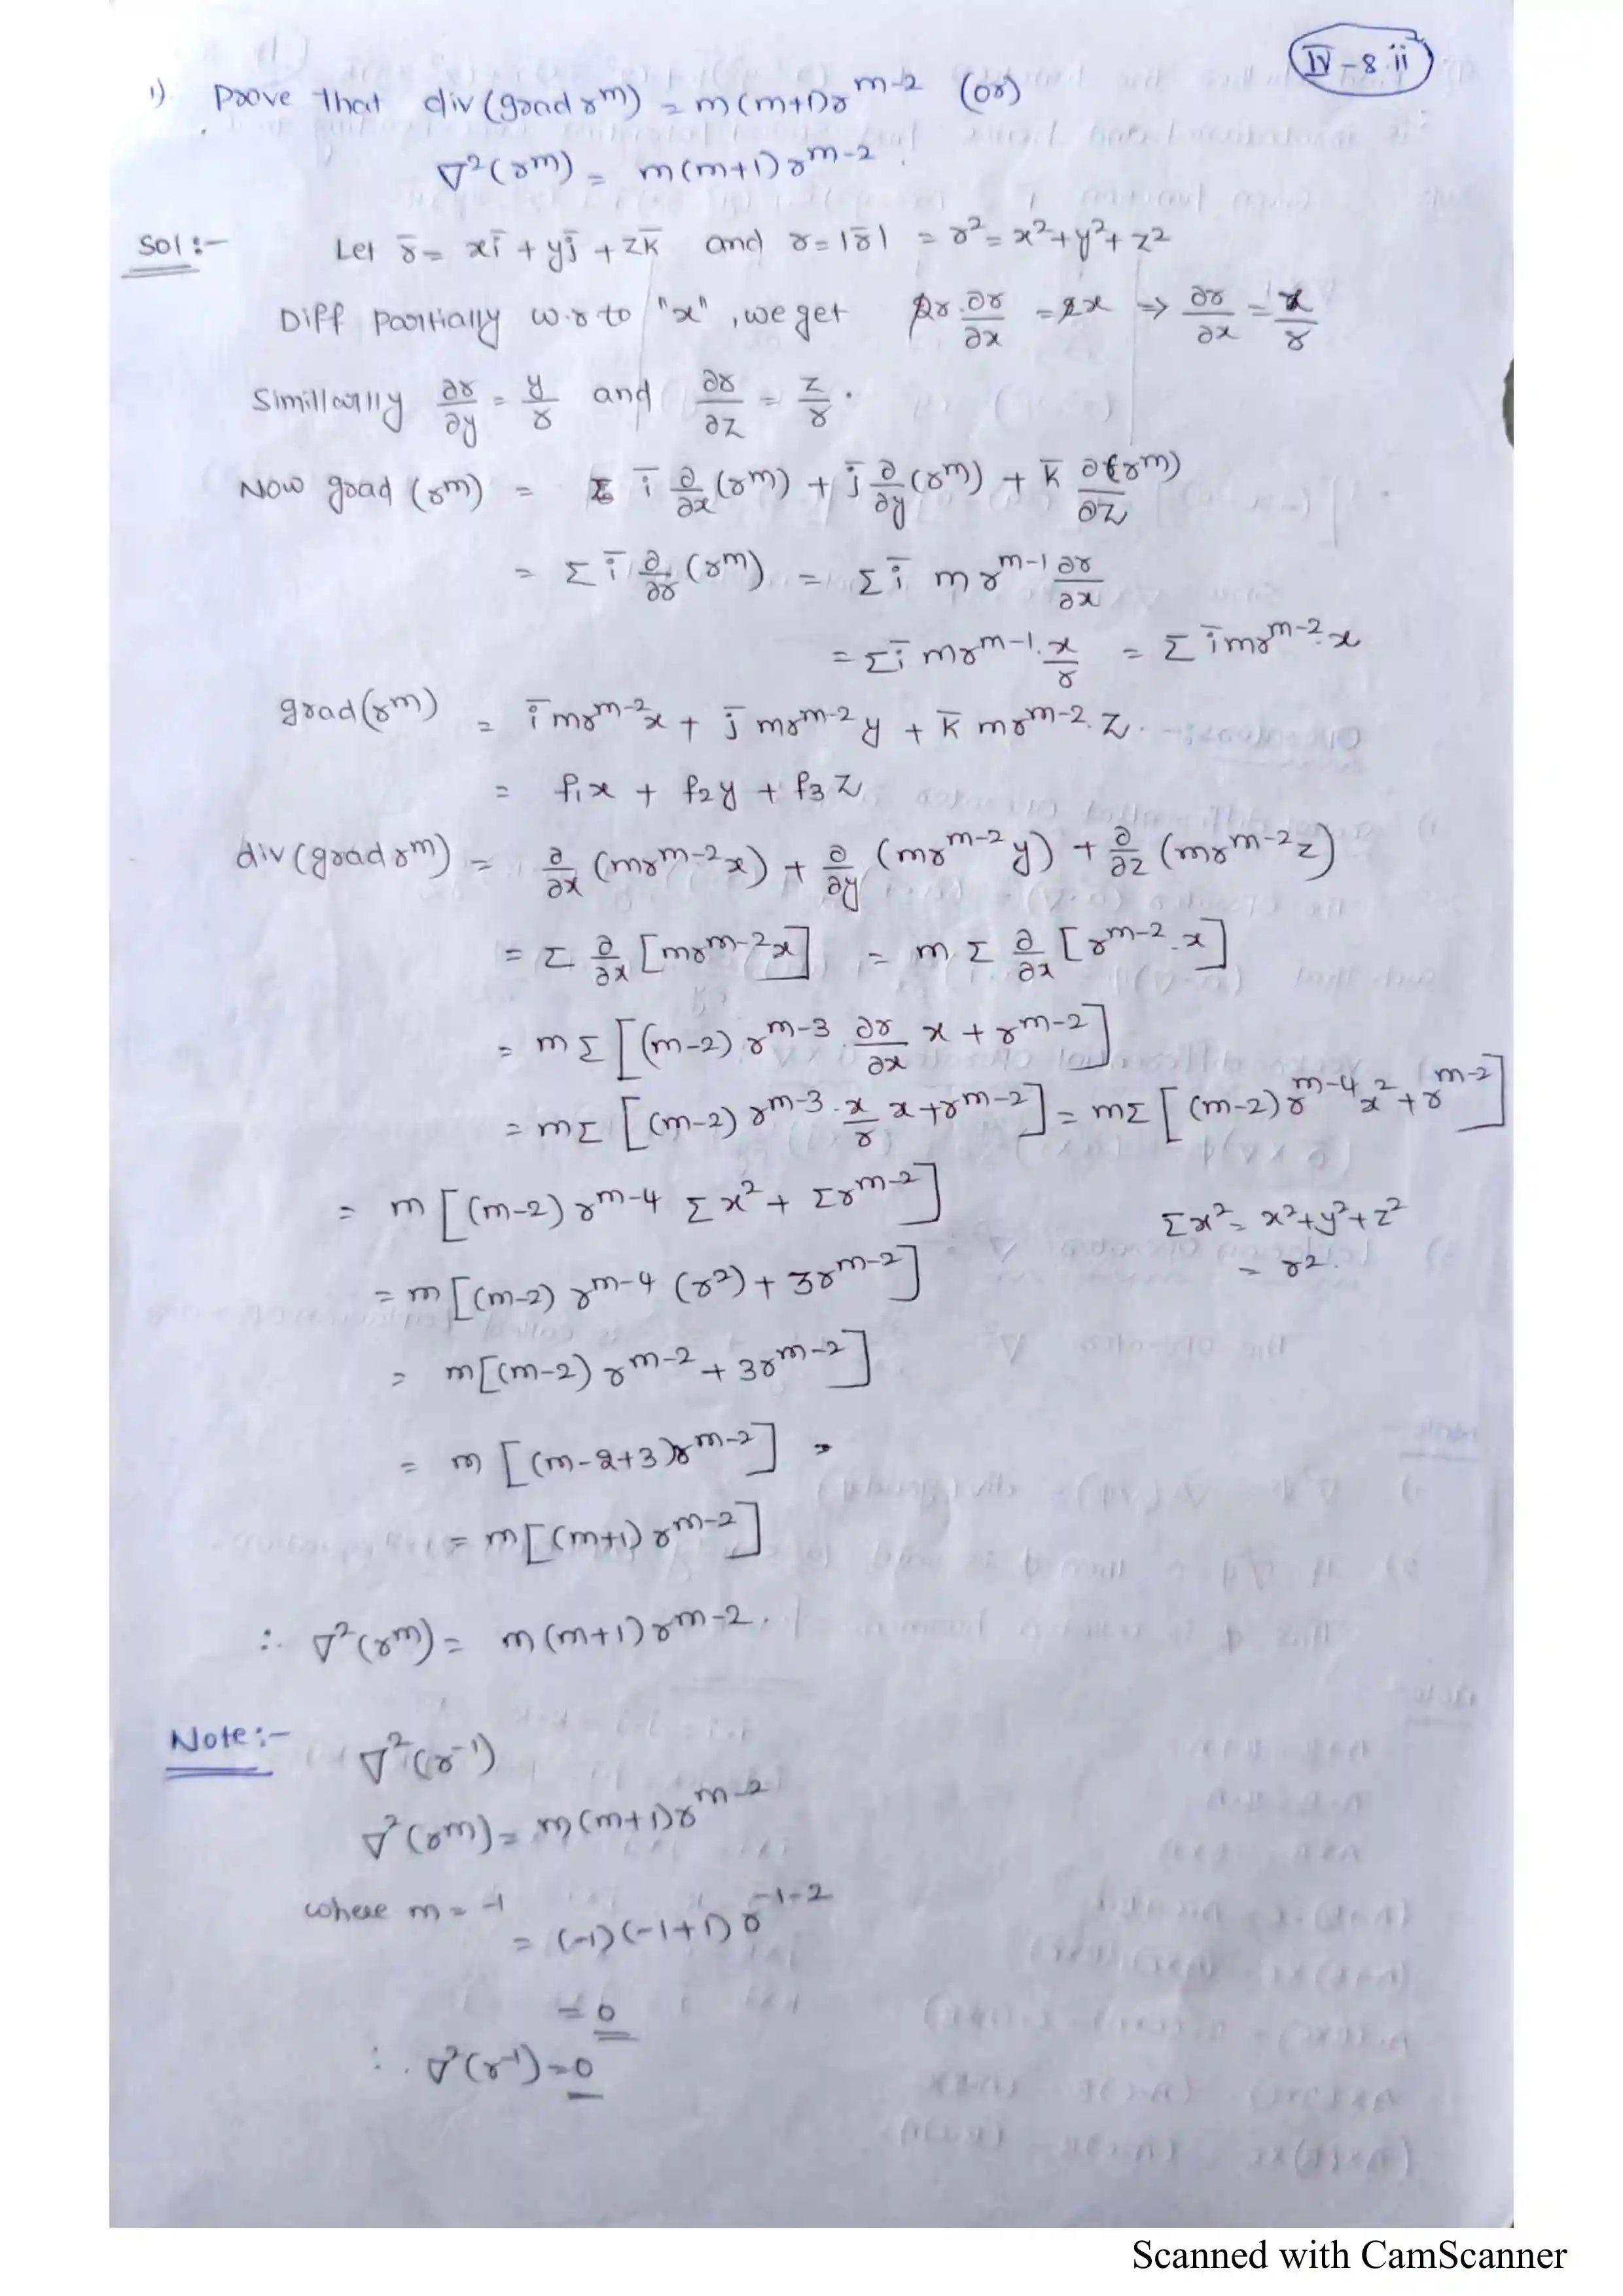 IV-8.ii
1) Prove that div(grad r^m) = m(m+1)r^{m-2} (or)
∇²(r^m) = m(m+1)r^{m-2}.
Sol:- Let r̄ = xī + yj̄ + zk̄ and r = |r̄| = r² = x²+y²+z²
Diff partially w.r to "x", we get 2r ∂r/∂x = 2x ⇒ ∂r/∂x = x/r
Simillarlly ∂r/∂y = y/r and ∂r/∂z = z/r.
Now grad (r^m) = ī ∂/∂x (r^m) + j̄ ∂/∂y (r^m) + k̄ ∂(r^m)/∂z
= Σ ī ∂/∂r (r^m) = Σ ī m r^{m-1} ∂r/∂x
= Σ ī m r^{m-1}. x/r = Σ ī m r^{m-2}. x
grad(r^m) = ī m r^{m-2} x + j̄ m r^{m-2} y + k̄ m r^{m-2}. z.
= f₁x + f₂y + f₃z
div(grad r^m) = ∂/∂x (m r^{m-2} x) + ∂/∂y (m r^{m-2} y) + ∂/∂z (m r^{m-2} z)
= Σ ∂/∂x [m r^{m-2} x] = m Σ ∂/∂x [r^{m-2}. x]
= m Σ [(m-2) r^{m-3} ∂r/∂x x + r^{m-2}]
= m Σ [(m-2) r^{m-3}. x/r x + r^{m-2}] = m Σ [(m-2) r^{m-4} x² + r^{m-2}]
= m [(m-2) r^{m-4} Σx² + Σr^{m-2}] Σx² = x²+y²+z²
= r².
= m [(m-2) r^{m-4} (r²) + 3r^{m-2}]
= m[(m-2) r^{m-2} + 3r^{m-2}]
= m [(m-2+3)r^{m-2}] =
= m[(m+1) r^{m-2}]
∴ ∇²(r^m) = m(m+1) r^{m-2}.
Note:- ∇²(r^{-1})
∇²(r^m) = m(m+1)r^{m-2}
where m = -1
= (-1)(-1+1) r^{-1-2}
= 0
∴ ∇²(r^{-1}) = 0
Scanned with CamScanner